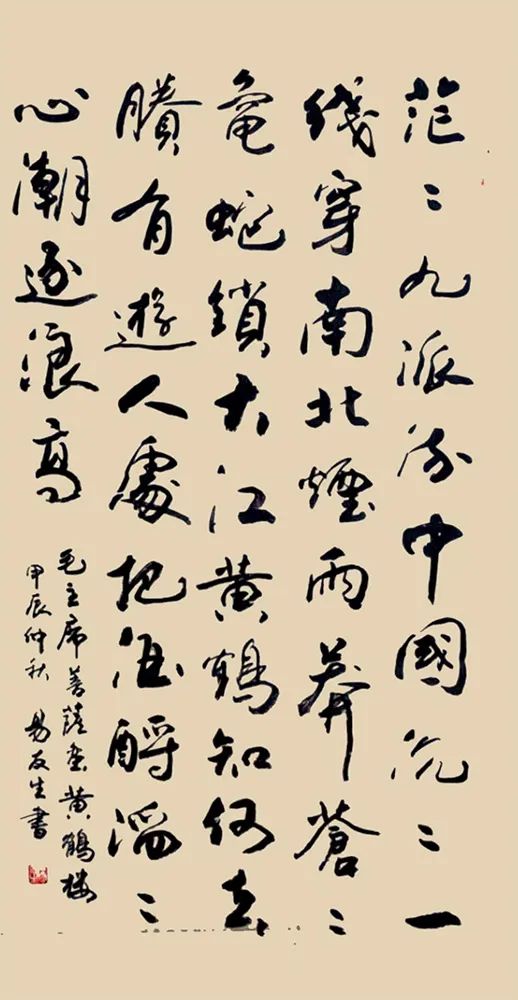 茫〻九派流中國沉〻一
綫穿南北煙雨莽蒼〻
龜蛇鎖大江黄鶴知何去
賸有遊人處把酒酹滔〻
心潮逐浪高
毛主席菩薩蛮黄鶴楼
甲辰仲秋 易友生書